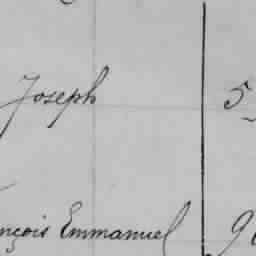 Joseph 5
nçois Emmanuel 9